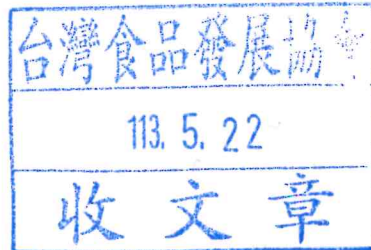 台灣食品發展協會
113. 5. 22
收文章